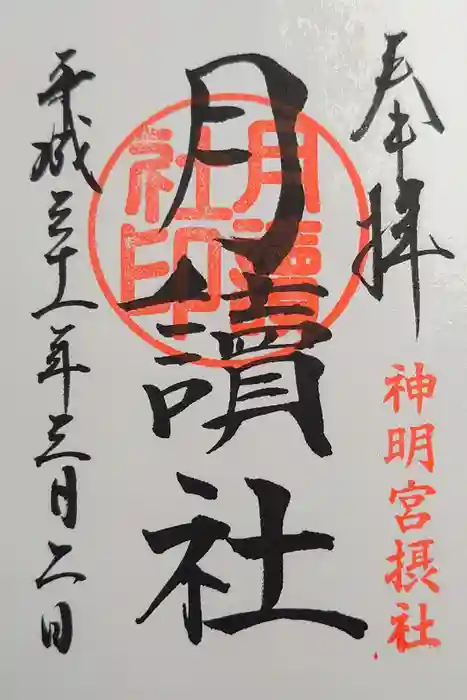 奉拝
神明宮摂社
月讀社
月讀
社印
平成三十一年三月二日